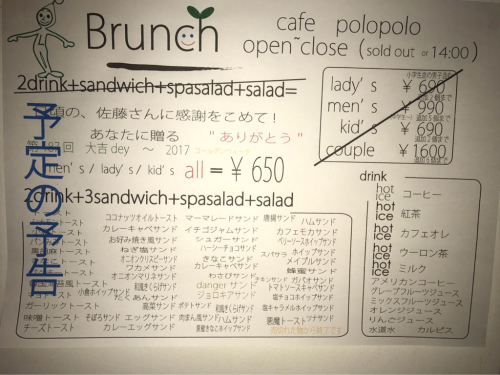 Brunch
cafe polopolo
open~close (sold out or 14:00)
2drink+sandwich+spasalad+salad=
佐藤さんに感謝をこめて！
あなたに贈る "ありがとう"
大吉dey ～ 2017
men's / lady's / kid's all=￥650
2drink+3sandwich+spasalad+salad
予定の予告
lady's ￥690
men's ￥990
kid's ￥690
couple ￥1600
drink
hot ice コーヒー
hot ice 紅茶
hot ice カフェオレ
hot ice ウーロン茶
hot ice ミルク
アメリカンコーヒー
グレープフルーツジュース
ミックスフルーツジュース
オレンジジュース
りんごジュース
水道水 カルピス
ココナッツオイルトースト マーマレードサンド 唐揚サンド ハムサンド
カレーキャベサンド イチゴジャムサンド カフェモカサンド
お好み焼き風サンド シュガーサンド ベリーソースホイップサンド
ねぎ塩サンド ハーシーチョコサンド
オニオンクリスピーサンド きなこサンド メイプルサンド
ワカメサンド カレーキャベサンド 蜂蜜サンド
オニオンマリネサンド わさびサンド チキンサンド ガパオサンド
小倉ホイップサンド 和風きくらげサンド dangerサンド トマトソースキャベサンド
だくあんサンド ジョロキアサンド 塩チョコホイップサンド
ガーリックトースト 高菜サンド ポテトサンド 和風きくらげサンド 塩キャラメルホイップサンド
味噌トースト そぼろサンド エッグサンド 肉まん風サンド ハムサンド 悪魔トースト ツナサンド
チーズトースト カレーエッグサンド 黒蜜きなこホイップサンド